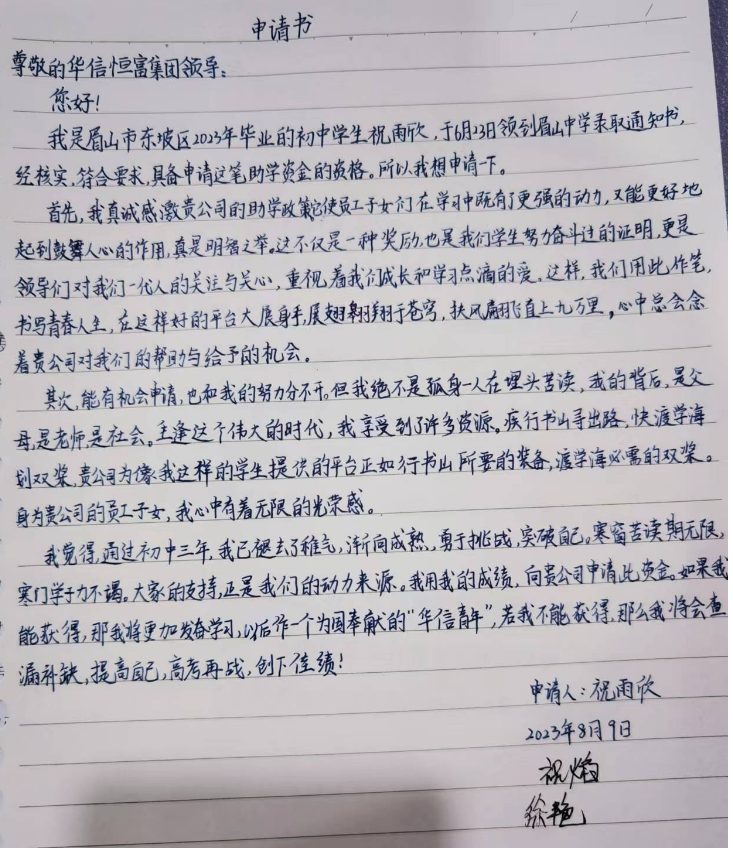 申请书
尊敬的华信恒富集团领导:
您好!
我是眉山市东坡区2023年毕业的初中学生祝雨欣,于6月23日领到眉山中学录取通知书,
经核实,符合要求,具备申请这笔助学资金的资格。所以我想申请一下。
首先,我真诚感激贵公司的助学政策,它使员工子女们在学习中既有了更强的动力,又能更好地
起到鼓舞人心的作用,真是明智之举。这不仅是一种奖励,也是我们学生努力奋斗过的证明,更是
领导们对我们一代人的关注与关心,重视着我们成长和学习点滴的爱。这样,我们用此作笔,
书写青春人生,在这样好的平台大展身手,展翅翱翔于苍穹,扶风翩飞直上九万里。心中总会念
着贵公司对我们的帮助与给予的机会。
其次,能有机会申请,也和我的努力分不开。但我绝不是孤身一人在埋头苦读,我的背后,是父
母,是老师,是社会。生逢这个伟大的时代,我享受到了许多资源。疾行书山寻出路,快渡学海
划双桨,贵公司为像我这样的学生提供的平台正如行书山所要的装备,渡学海必需的双桨。
身为贵公司的员工子女,我心中有着无限的光荣感。
我觉得,通过初中三年,我已褪去了稚气,渐向成熟,勇于挑战,突破自己。寒窗苦读期无限,
寒门学子力不竭。大家的支持,正是我们的动力来源。我用我的成绩,向贵公司申请此资金。如果我
能获得,那我将更加发奋学习,以后作一个为国奉献的“华信青年”,若我不能获得,那么我将会查
漏补缺,提高自己,高考再战,创下佳绩!
申请人:祝雨欣
2023年8月9日
祝
徐艳